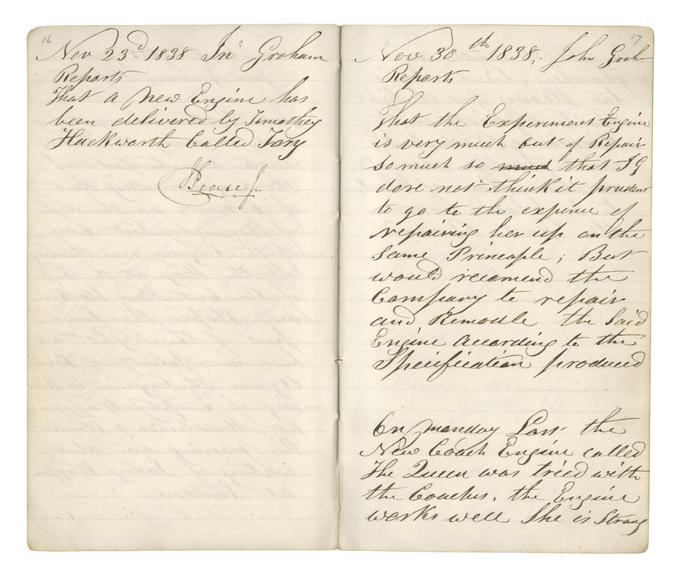 16
Nov 23d 1838 Jno Graham
Reports
That a New Engine has
been delivered by Timothey
Hackworth Called Tory
JPease Jr
17
Nov 30th 1838, John Grah
Reports
That the Experiment Engine
is very much out of Repair
so much so much that JG
dare not think it prudent
to go to the expense of
repairing her up on the
Same Princaple; But
would recomend the
Company to repair
and Remodle the Said
Engine According to the
Specification produced
On Monday Last the
New Coach Engine called
The Queen was tried with
the Coaches, the Engine
works well She is Strong